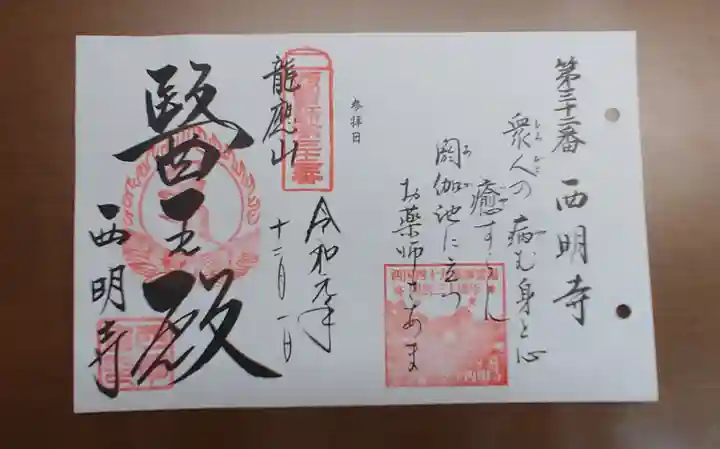 第三十二番 西明寺
衆人の病む身と心
癒すらん
閼伽池に立つ
お薬師さあま
参拝日
令和元年
十二月一日
龍應山
醫王殿
西明寺